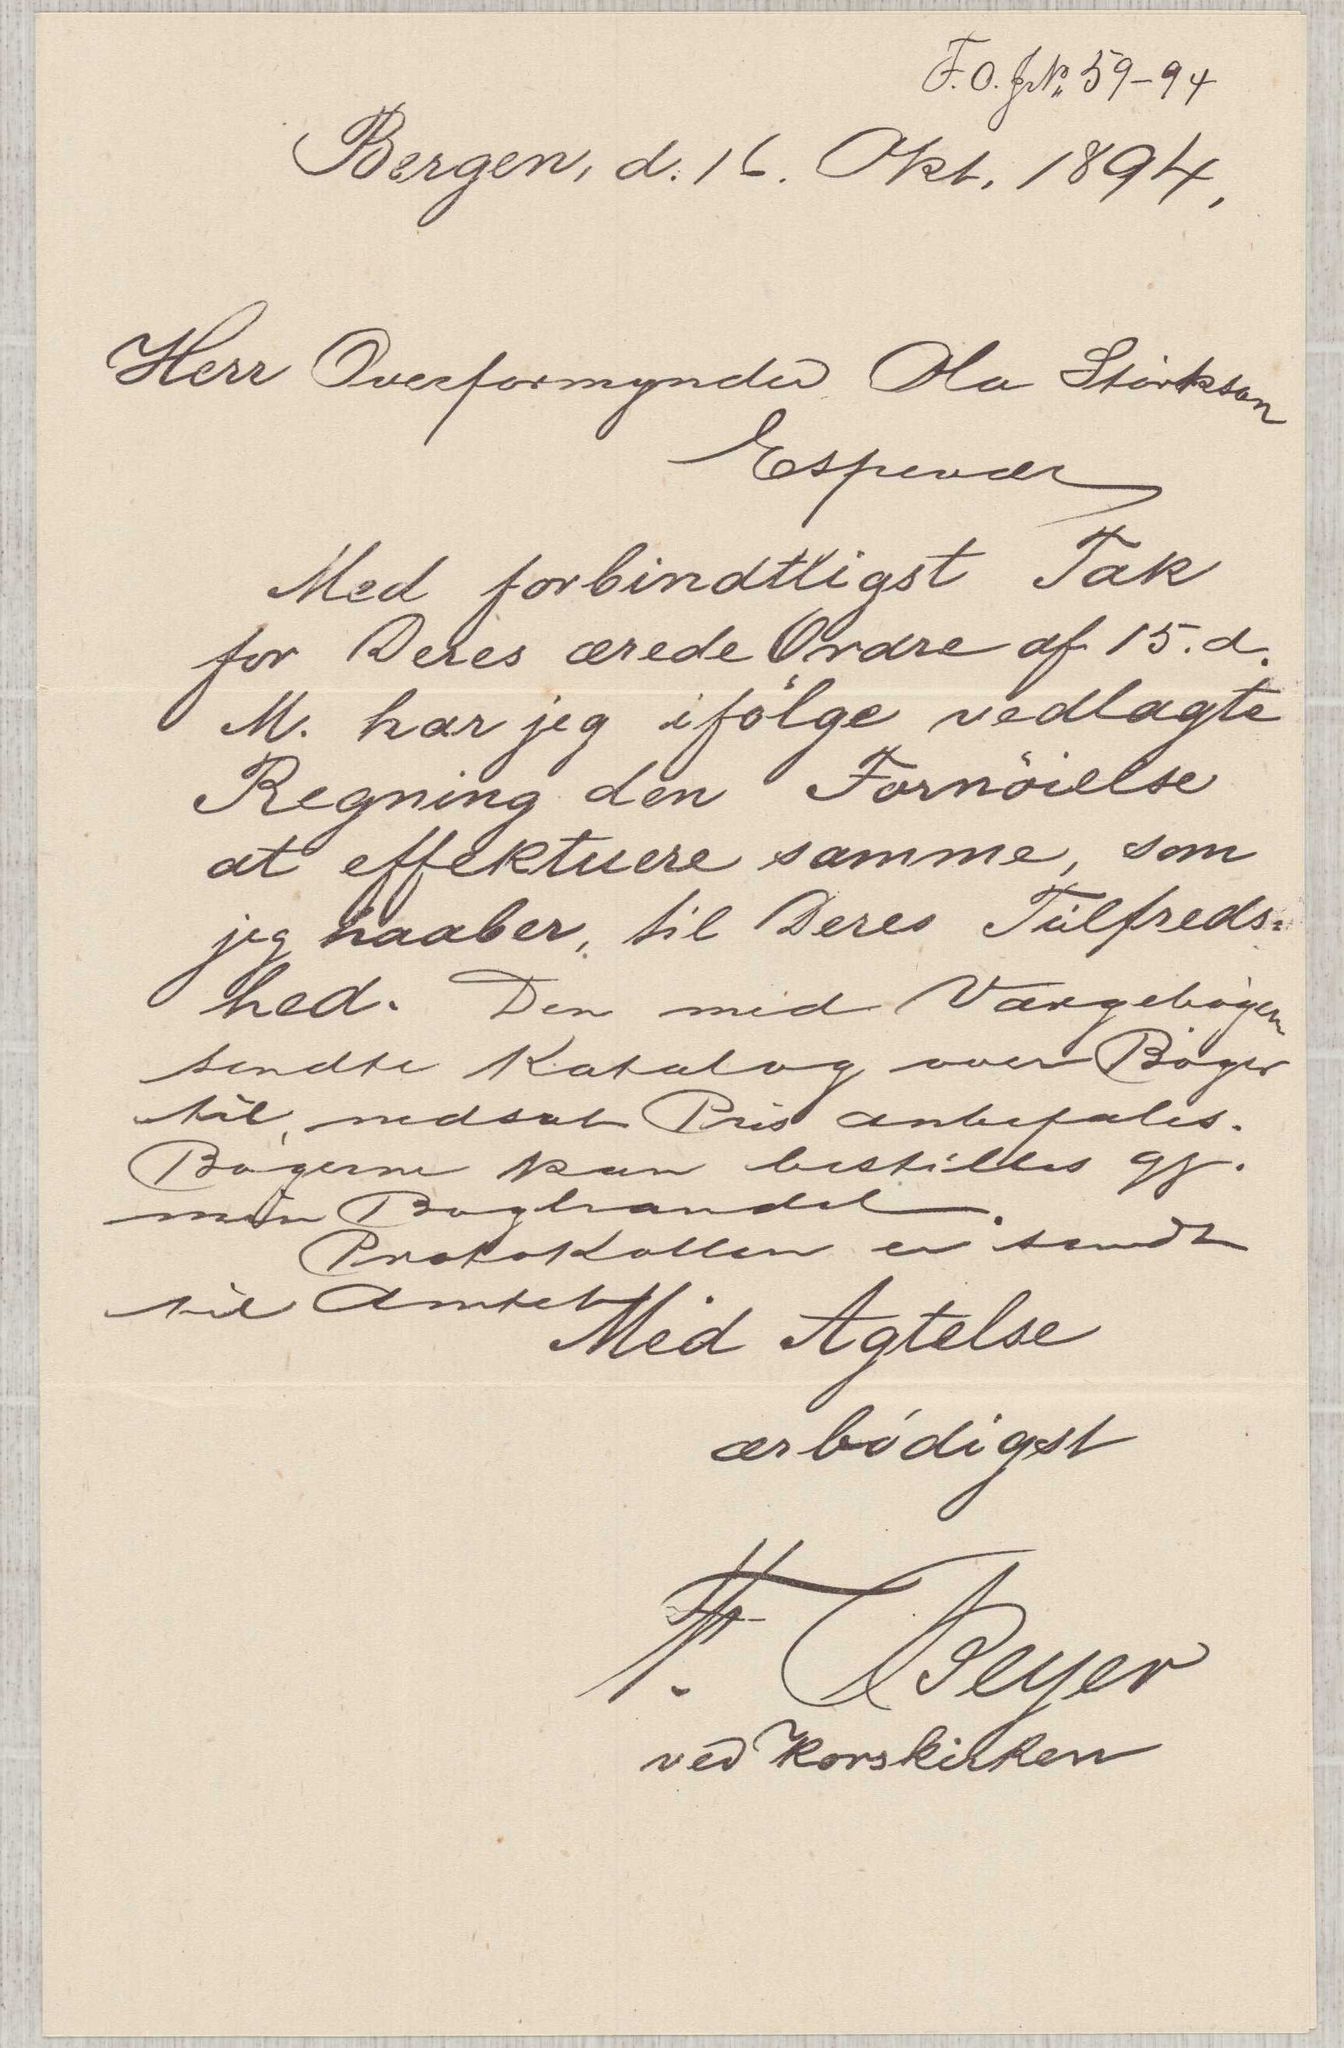 F. O. JrNo. 59-94
Bergen, d. 16. Okt. 1894.
Herr Overformynder Ola Störkson
Espevær
Med forbindtligst Tak
for Deres ærede Ordre af 15. d.
M. har jeg ifölge vedlagte
Regning den Fornöielse
at effektuere samme, som
jeg haaber, til Deres Tilfreds-
hed. Den med Værgebøgern
sendte Katalog over Bøger
til nedsat Pris anbefales.
Bøgerne kan bestilles gj.
min Boghandel.
Protokollen er sendt
til Amtet
Med Agtelse
ærbödigst
F. Beyer
ved Korskirken